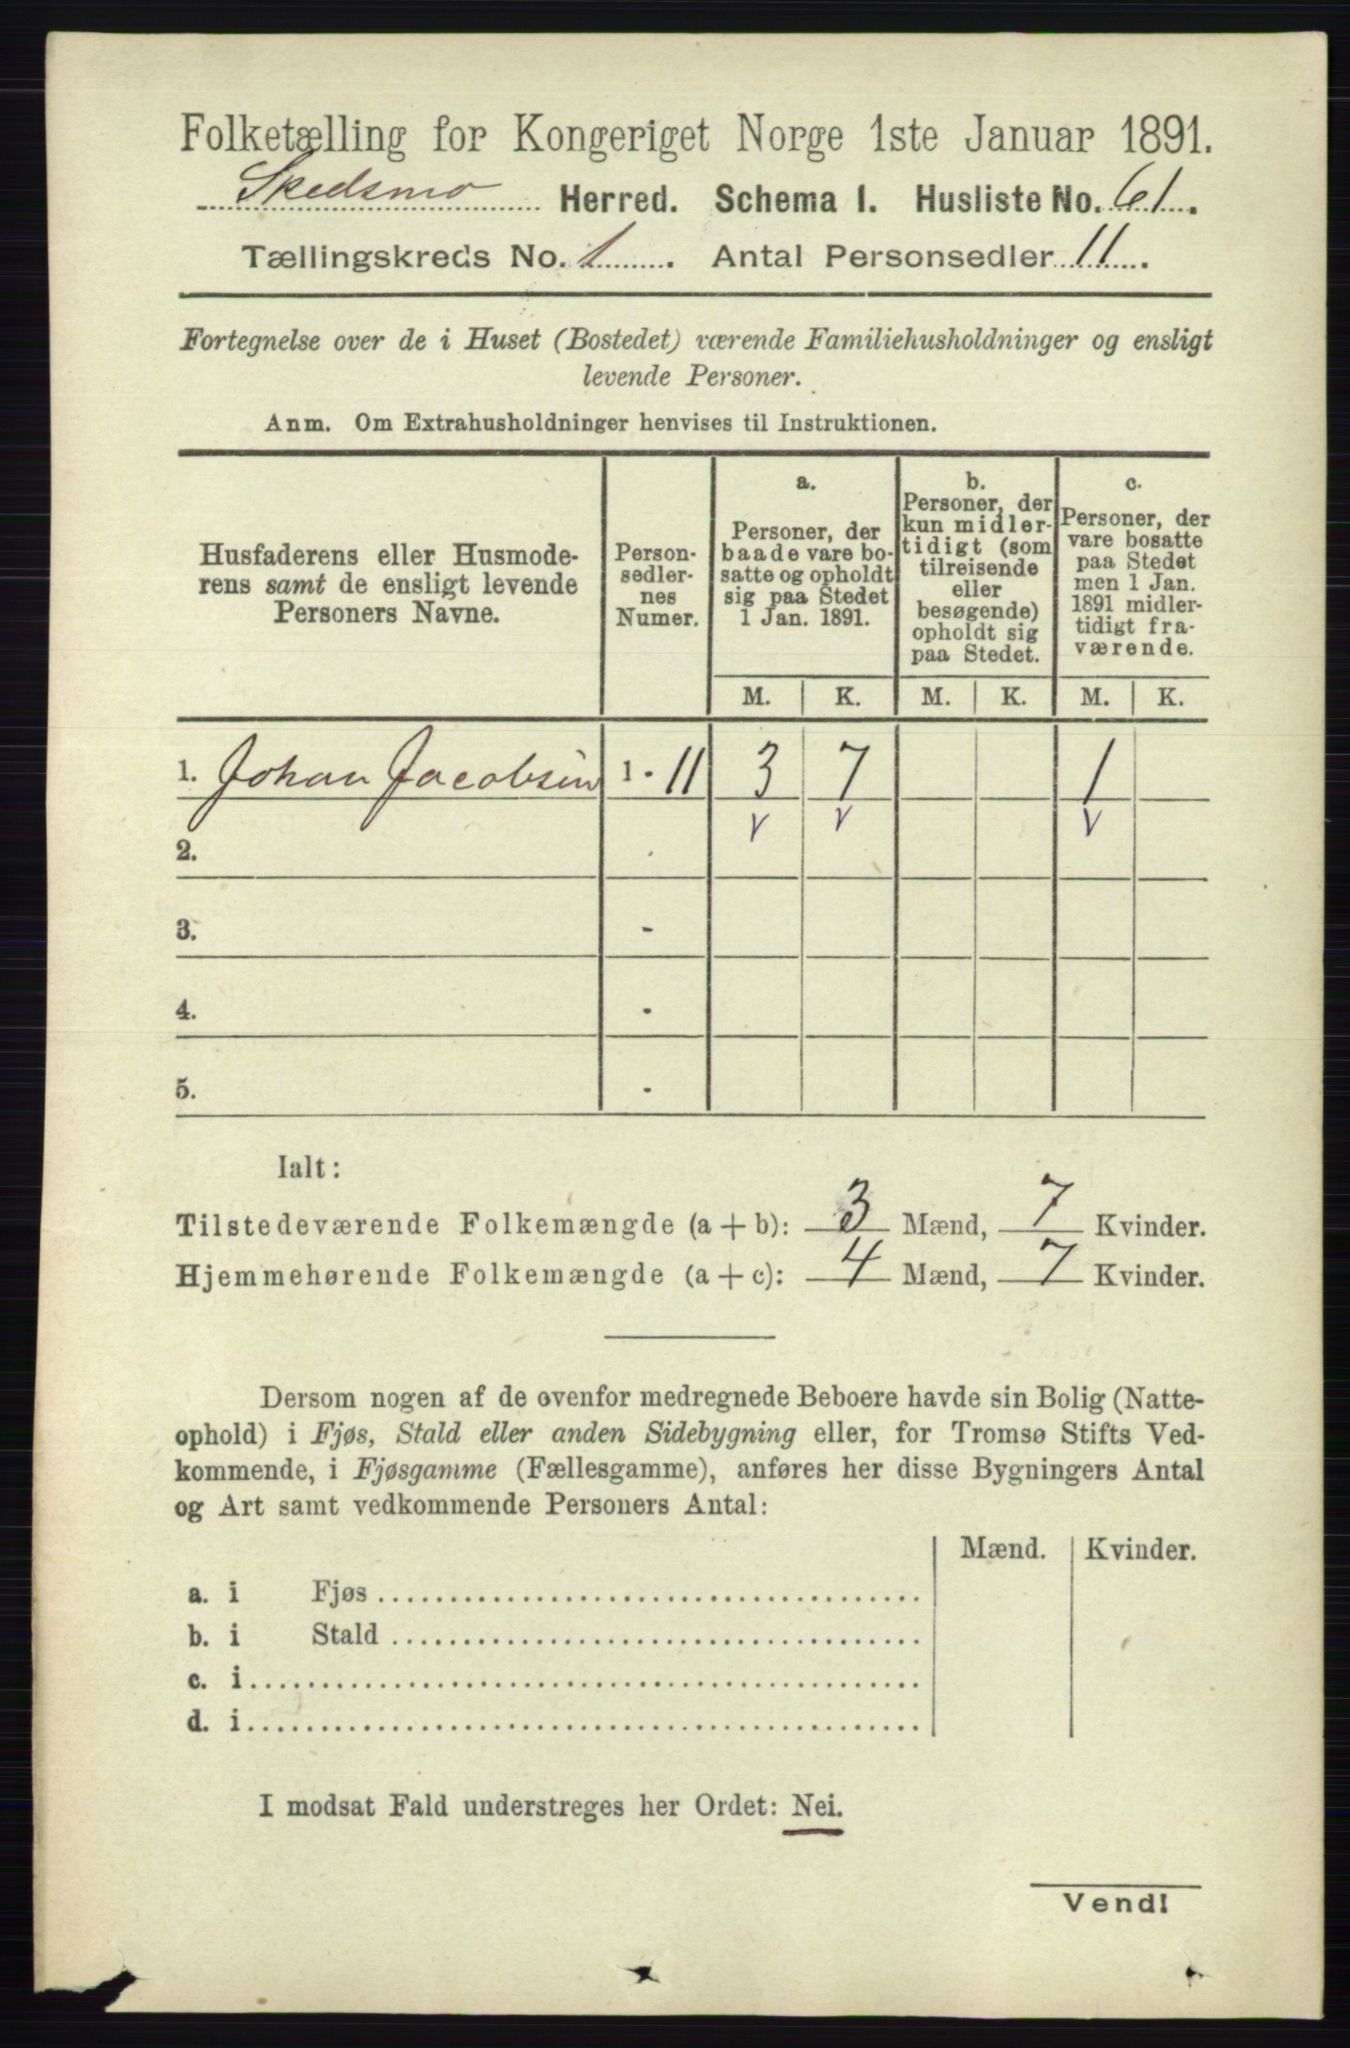 Folketælling for Kongeriget Norge 1ste Januar 1891.
Skedsmo Herred. Schema I. Husliste No. 61.
Tællingskreds No. 1. Antal Personsedler 11.
Fortegnelse over de i Huset (Bostedet) værende Familiehusholdninger og ensligt
levende Personer.
Anm. Om Extrahusholdninger henvises til Instruktionen.
Husfaderens eller Husmode-
rens samt de ensligt levende
Personers Navne.
Person-
sedler-
nes
Numer.
a.
Personer, der
baade vare bo-
satte og opholdt
sig paa Stedet
1 Jan. 1891.
b.
Personer, der
kun midler-
tidigt (som
tilreisende
eller
besøgende)
opholdt sig
paa Stedet.
c.
Personer, der
vare bosatte
paa Stedet
men 1 Jan.
1891 midler-
tidigt fra-
værende.
M. K. M. K. M. K.
1. Johan Jacobsen 1 - 11 3 7 1
v v v
2.
3. -
4. -
5. -
Ialt:
Tilstedeværende Folkemængde (a + b): 3 Mænd, 7 Kvinder.
Hjemmehørende Folkemængde (a + c): 4 Mænd, 7 Kvinder.
Dersom nogen af de ovenfor medregnede Beboere havde sin Bolig (Natte-
ophold) i Fjøs, Stald eller anden Sidebygning eller, for Tromsø Stifts Ved-
kommende, i Fjøsgamme (Fællesgamme), anføres her disse Bygningers Antal
og Art samt vedkommende Personers Antal:
Mænd. Kvinder.
a. i Fjøs
b. i Stald
c. i
d. i
I modsat Fald understreges her Ordet: Nei.
Vend!